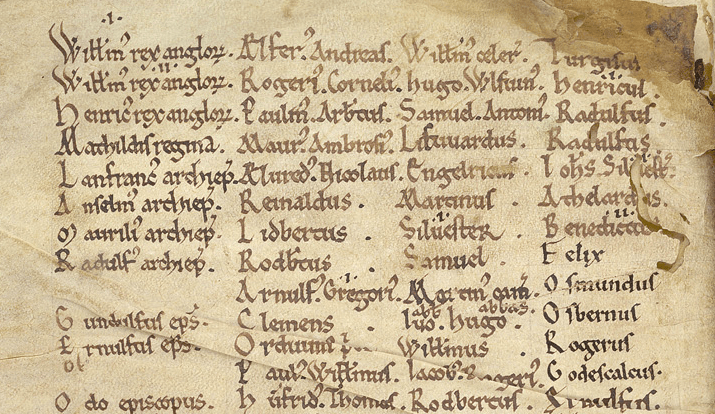 .I.
Willm̄ rex angloꝝ. Ælfer'. Andreas. Willm̄ celer'. Turgisus
.II.
Willm̄ rex angloꝝ. Rogeri'. Corneli'. Hugo. Wlfuin'. Henricus.
Henric' rex angloꝝ. Paulin'. Arb̄tus. Samuel. Antoni'. Radulfus.
Mathildis regina. Maur'. Ambrosi'. Lituuardus. Radulfus.
Lanfranc' archiep̄. Ælured'. Nicolaus. Engelricus. Ioh̄s.
Anselm' archiep̄. Reinaldus. Martinus. Athelardus.
.I. .II.
Maurili' archiep̄. Lidbertus. Siluester. Benedictus
Radulf' archiep̄. Rodb̄tus Samuel. Felix
.I.
Arnulf'. Gregori'. Martin' Osmundus
abb abbas.
Gundulfus ep̄s. Clemens. Iuo. Hugo. Osbernus
Ernulfus ep̄s. Orduuin' Willmus Rogerus
Paul'. Willimus. Iacob'. Rogeri'. Godescalcus.
Odo episcopus. Hūfrid'. Thomas. Rodbertus. Arnulfus.